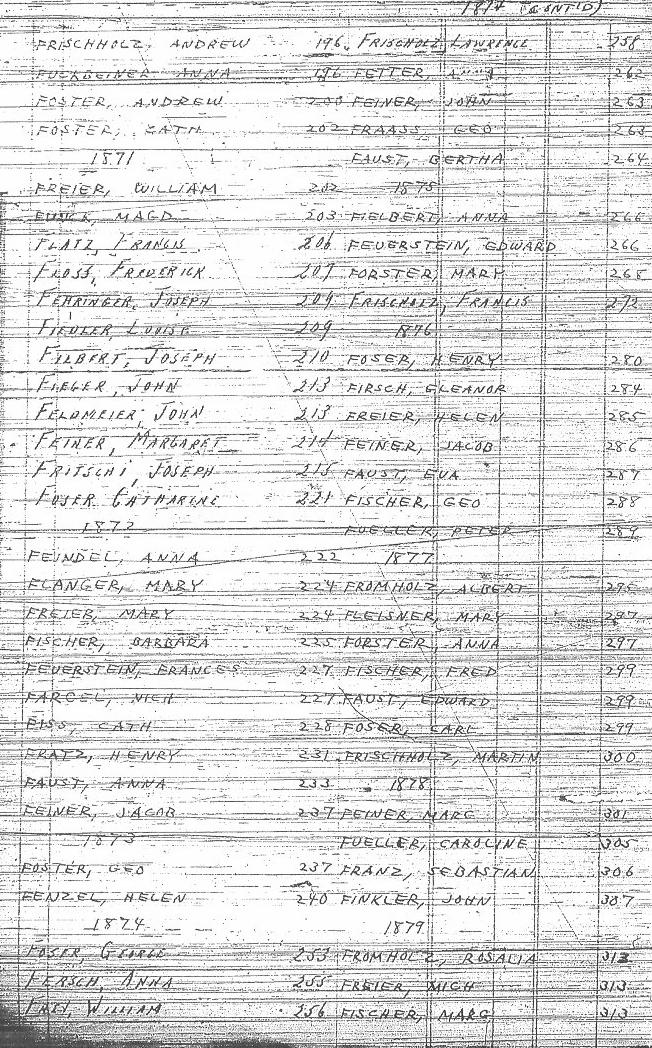 1874 (CONT'D)
FRISCHHOLZ, ANDREW 196
FUCKBEINER ANNA 196
FOSTER, ANDREW 200
FOSTER, CATH 202
1871
FREIER, WILLIAM 202
MAGD 203
FLATZ, FRANCIS 206
FLOSS, FREDERICK 207
FEHRINGER, JOSEPH 209
FIEDLER, LOUISE 209
FILBERT, JOSEPH 210
FIEGER, JOHN 213
FELDMEIER, JOHN 213
FEINER, MARGARET 214
FRITSCHI, JOSEPH 215
FOSER CATHARINE 221
1872
FEINDEL, ANNA 222
FLANGER, MARY 224
FREIER, MARY 224
FISCHER, BARBARA 225
FEUERSTEIN, FRANCES 227
FARCEL, NICH 227
CATH 228
FRATZ, HENRY 231
FAUST, ANNA 233
FEINER, JACOB 237
1873
FOSTER, GEO 237
FENZEL, HELEN 240
1874
FOSER, GEORGE 253
FERSCH, ANNA 255
FREI, WILLIAM 256
FRISCHOLZ, LAWRENCE 258
FETTER, ANNA 262
FEINER, JOHN 263
FRAASS, GEO 263
FAUST, BERTHA 264
1875
FIELBERT, ANNA 266
FEUERSTEIN, EDWARD 266
FORSTER, MARY 268
FRISCHOLZ, FRANCIS 272
1876
FOSER, HENRY 280
FIRSCH, GLEANOR 284
FREIER, HELEN 285
FEINER, JACOB 286
FAUST, EVA 287
FISCHER, GEO 288
FUELLER, PETER 289
1877
FROMHOLZ, ALBERT 295
FLEISNER, MARY 297
FORSTER, ANNA 297
FISCHER, FRED 299
FAUST, EDWARD 299
FOSER, CARL 299
FRISCHHOLZ, MARTIN 300
1878
FEINER, MARG 301
FUELLER, CAROLINE 305
FRANZ, SEBASTIAN 306
FINKLER, JOHN 307
1879
FROMHOLZ, ROSALIA 313
FREIER, MICH 313
FISCHER, MARG 313